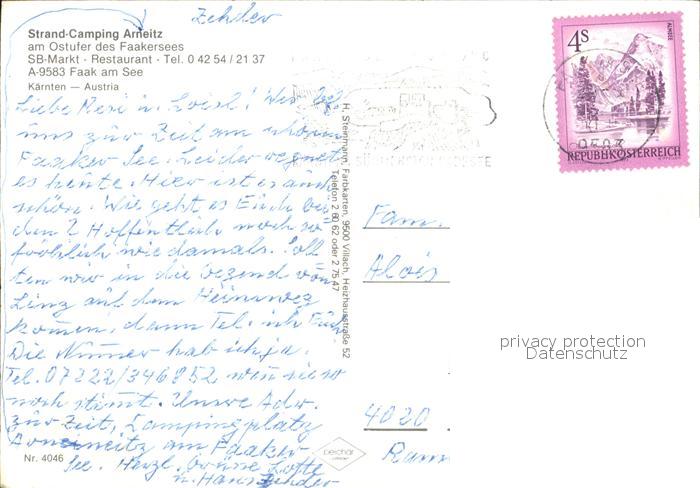 Zehder
Strand-Camping Arneitz
am Ostufer des Faakersees
SB-Markt - Restaurant - Tel. 0 42 54 / 21 37
A-9583 Faak am See
Kärnten — Austria
Liebe Resi u. Loisl! Wir bef.
uns zur Zeit am schönen
Faaker See. Leider regnet
es heute. Hier ist es auch
schön. Wie geht es Euch bei-
den? Hoffentlich noch so
fröhlich wie damals. Soll
ten wir in die Gegend von
Linz auf dem Heimweg
kommen, dann Tel. ich Euch
Die Nummer hab ich ja.
Tel. 07222/346852 wenn sie so
noch stimmt. Unsre Adr.
zur Zeit, Campingplatz
Arneitz am Faaker
See. Herzl. Grüsse Lotte
u. Hans Zehder
Nr. 4046
H. Steinmann, Farbkarten, 9500 Villach, Heizhausstraße 52
Telefon 2 60 62 oder 2 75 47
4S
ALMSEE
REPUBLIK ÖSTERREICH
Fam.
Alois
4020
privacy protection
Datenschutz